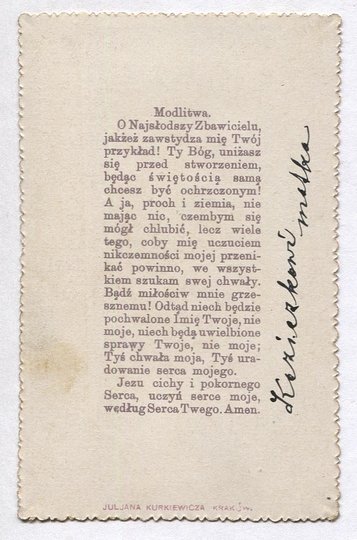 Modlitwa.
O Najsłodszy Zbawicielu,
jakżeż zawstydza mię Twój
przykład! Ty Bóg, uniżasz
się przed stworzeniem,
będąc świętością samą
chcesz być ochrzczonym!
A ja, proch i ziemia, nie
mając nic, czembym się
mógł chlubić, lecz wiele
tego, coby mię uczuciem
nikczemności mojej przeni-
kać powinno, we wszyst-
kiem szukam swej chwały.
Bądź miłościw mnie grze-
sznemu! Odtąd niech będzie
pochwalone Imię Twoje, nie
moje, niech będą uwielbione
sprawy Twoje, nie moje;
Tyś chwała moja, Tyś ura-
dowanie serca mojego.
Jezu cichy i pokornego
Serca, uczyń serce moje,
według Serca Twego. Amen.
Kazieczkowi matka
JULJANA KURKIEWICZA KRAKÓW.